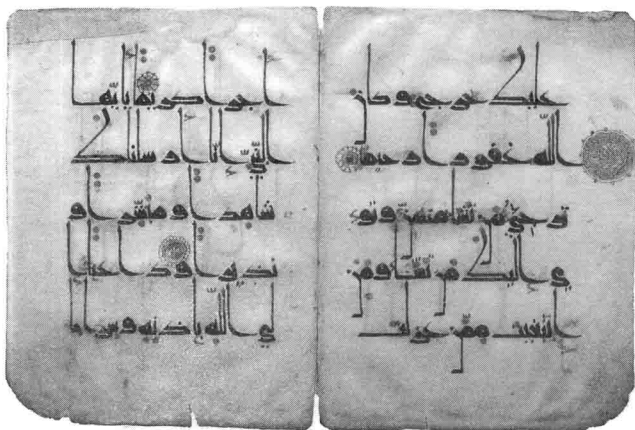 عليك حرج وكان
الله غفورا رحيما
ترجي من تشا منهن وتو
ي اليك من تشا ومن
ابتغيت ممن عزلت
اجرا كريما يايها
النبي انا ارسلنك
شاهدا ومبشرا و
نذيرا وداعيا ا
لى الله باذنه وسراجا